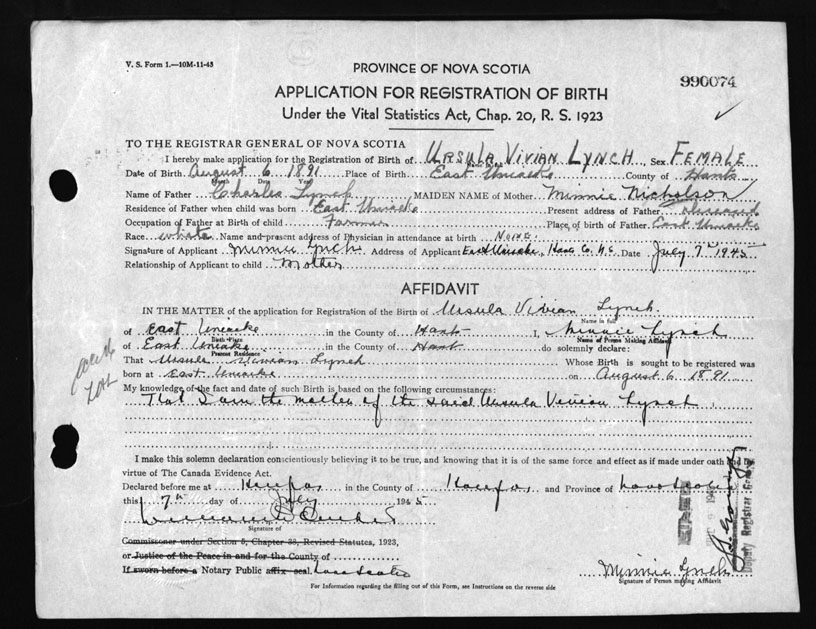 V. S. Form 1.—10M-11-43
PROVINCE OF NOVA SCOTIA
990074
APPLICATION FOR REGISTRATION OF BIRTH
Under the Vital Statistics Act, Chap. 20, R. S. 1923
TO THE REGISTRAR GENERAL OF NOVA SCOTIA
I hereby make application for the Registration of Birth of URSULA VIVIAN LYNCH Sex FEMALE
Date of Birth August 6 1891 Place of Birth East Uniacke County of Hants
Month Day Year
Name of Father Charles Lynch MAIDEN NAME of Mother Minnie Nicholson
Residence of Father when child was born East Uniacke Present address of Father
Occupation of Father at Birth of child Farmer Place of birth of Father East Uniacke
Race white Name and present address of Physician in attendance at birth None
Signature of Applicant Minnie Lynch Address of Applicant East Uniacke, Date July 7th 1945
Relationship of Applicant to child Mother
AFFIDAVIT
IN THE MATTER of the application for Registration of the Birth of Ursula Vivian Lynch
Name in full
of East Uniacke in the County of Hants I, Minnie Lynch
Birth Place Name of Person Making Affidavit
of East Uniacke in the County of Hants do solemnly declare:
Present Residence
That Ursula Vivian Lynch Whose Birth is sought to be registered was
born at East Uniacke on August 6 1891
My knowledge of the fact and date of such Birth is based on the following circumstances:
That I am the mother of the said Ursula Vivian Lynch
I make this solemn declaration conscientiously believing it to be true, and knowing that it is of the same force and effect as if made under oath and by
virtue of The Canada Evidence Act.
Declared before me at Halifax in the County of Halifax and Province of Nova Scotia
this 7th day of July 1945
Signature of
Commissioner under Section 5, Chapter 38, Revised Statutes, 1923,
or Justice of the Peace in and for the County of
If sworn before a Notary Public affix seal. Nova Scotia
Minnie Lynch
Signature of Person making Affidavit
Deputy Registrar General
For Information regarding the filling out of this Form, see Instructions on the reverse side